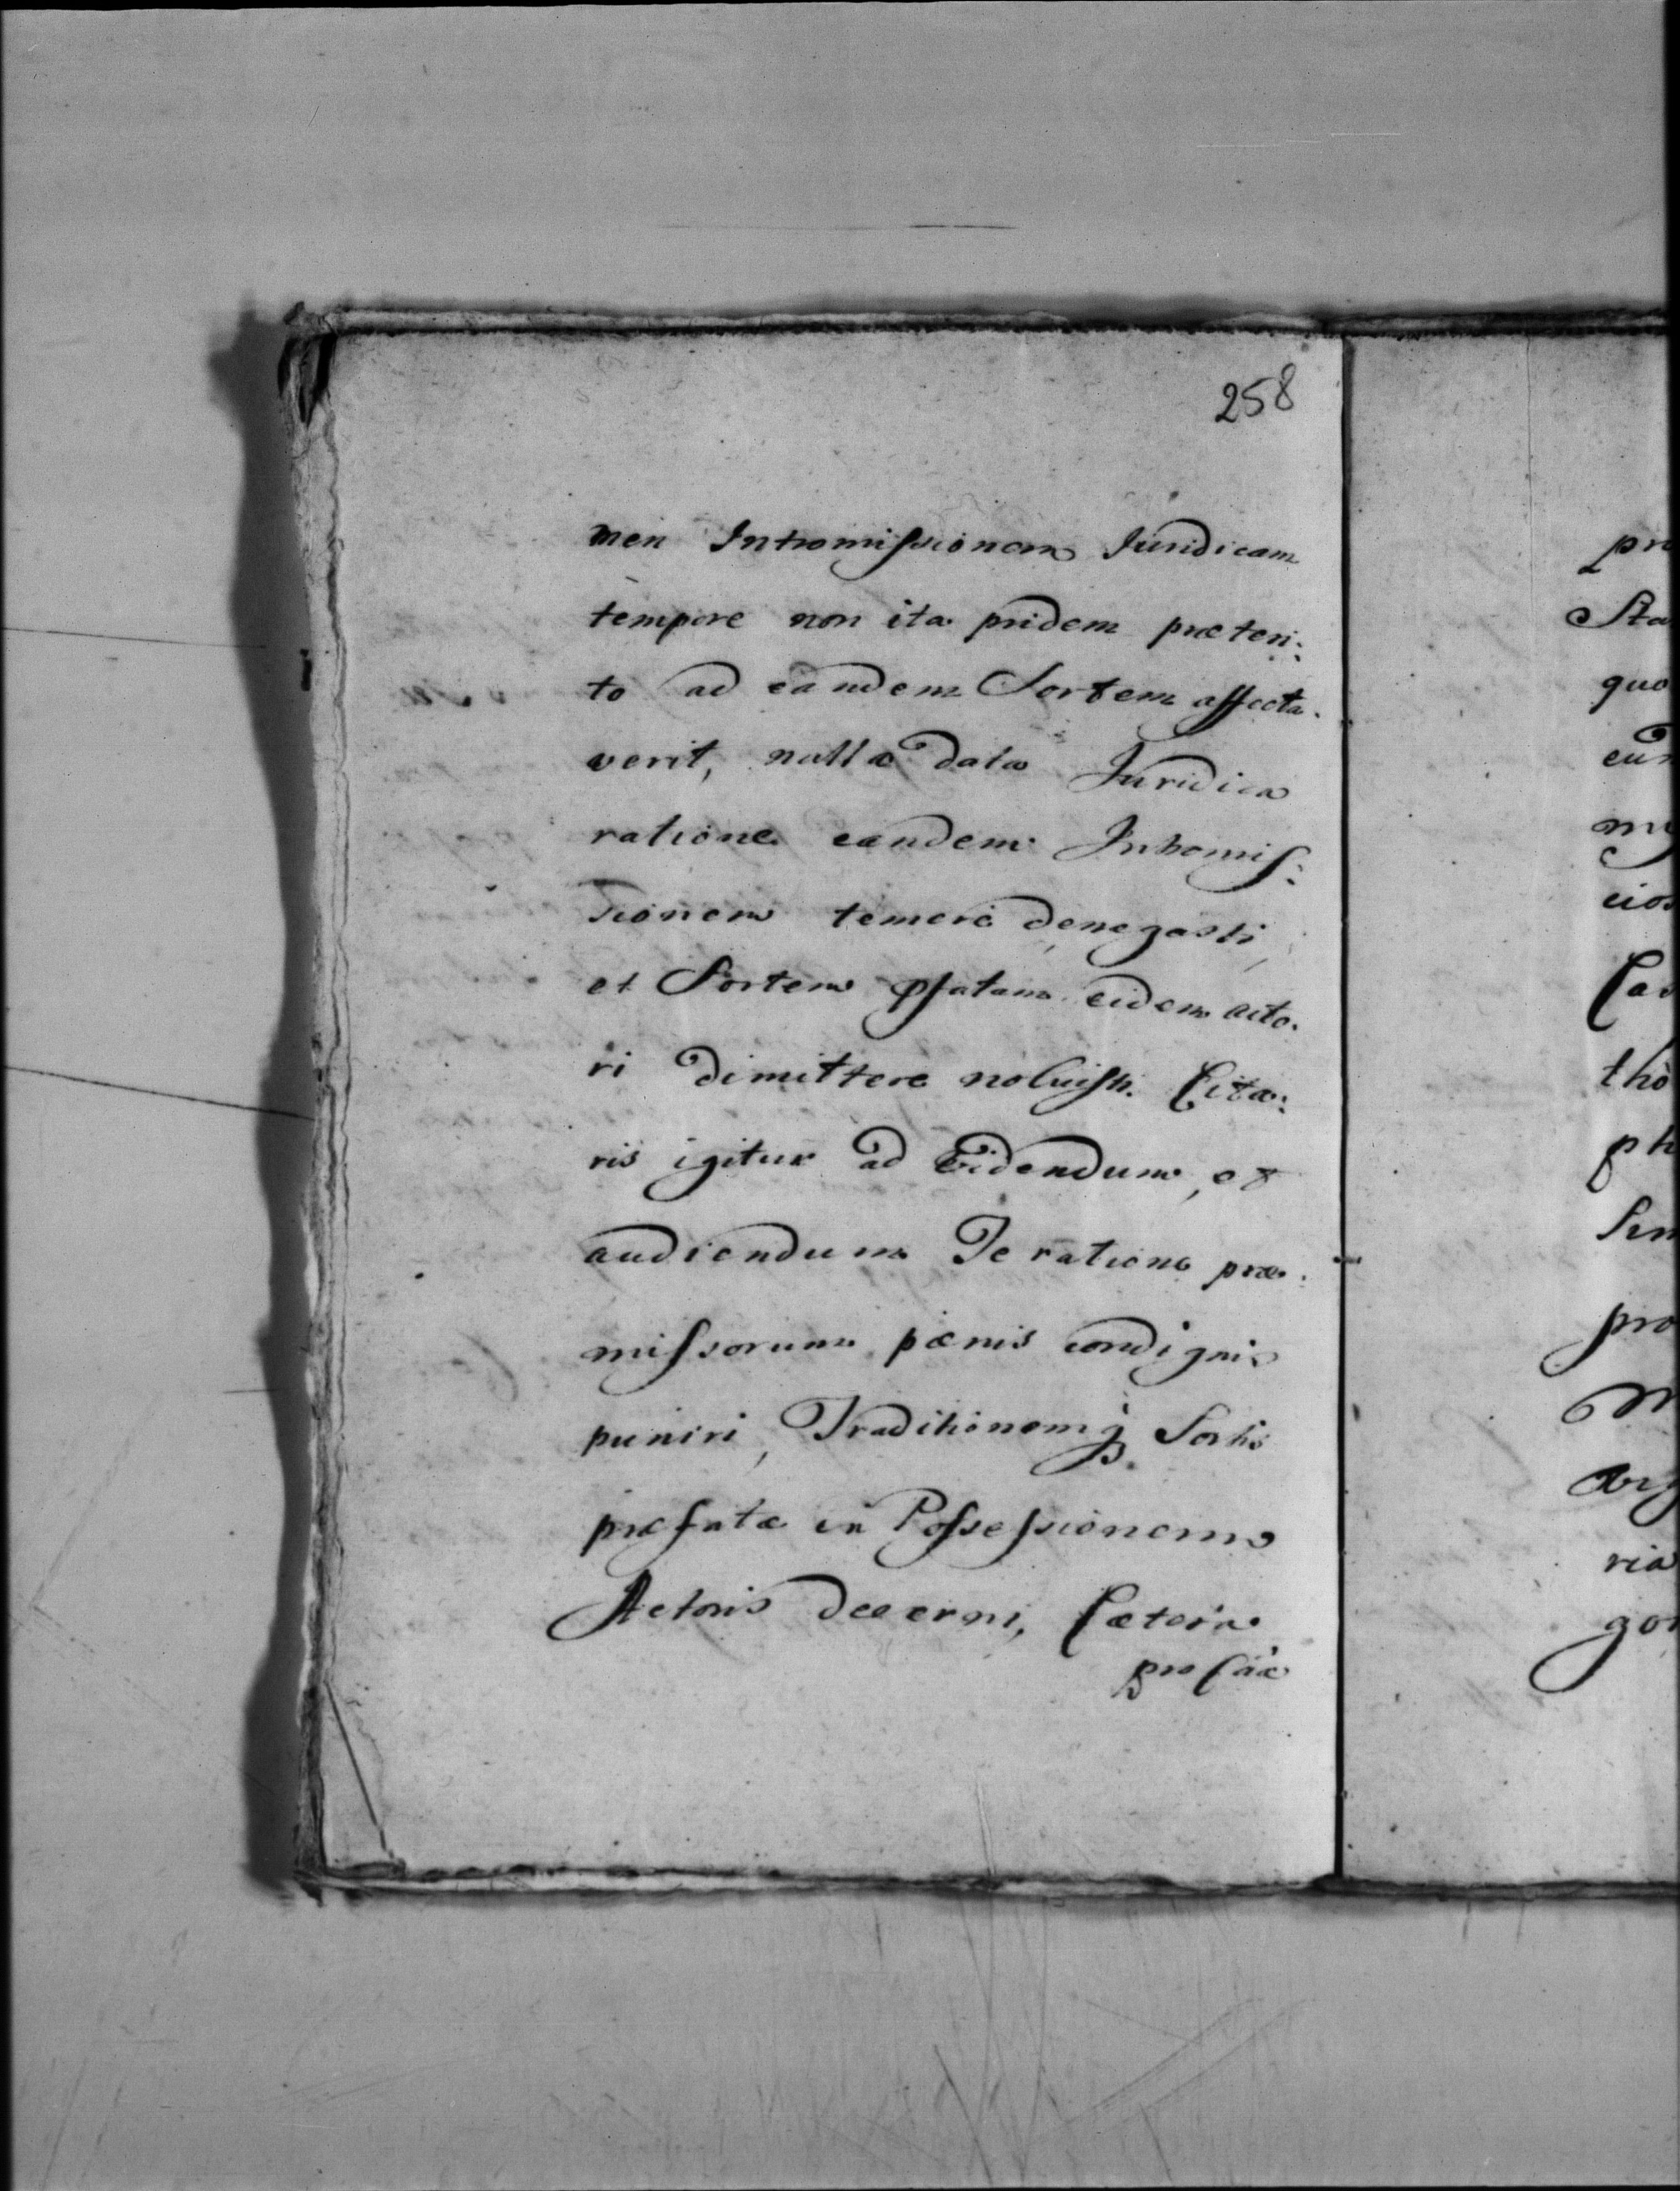 258
men Intromissionem Juridicam
tempore non ita pridem præteri:
to ad eandem Sortem affecta:
verit, nulla data Juridica
ratione eandem Intromis:
sionem temere denegasti,
et Sortem pfatam eidem acto:
ri dimittere noluisti. Cita:
ris igitur ad videndum, et
audiendum Te ratione præ:
missorum pænis condignis
puniri, Traditionemq Sortis
præfatæ in Possessionem
Actoris decerni, Cætera
pro
pro
Sta
quo
my
cios
thò
ph
pro
ria